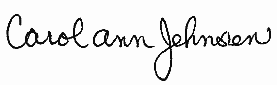 Carol ann Johnson